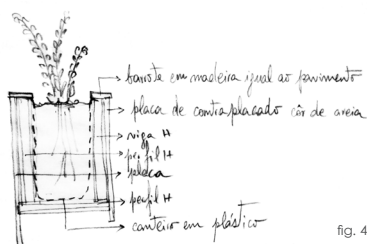 barrote em madeira igual ao pavimento
placa de contraplacado côr de areia
viga H
perfil H
placa
perfil H
canteiro em plástico
fig. 4